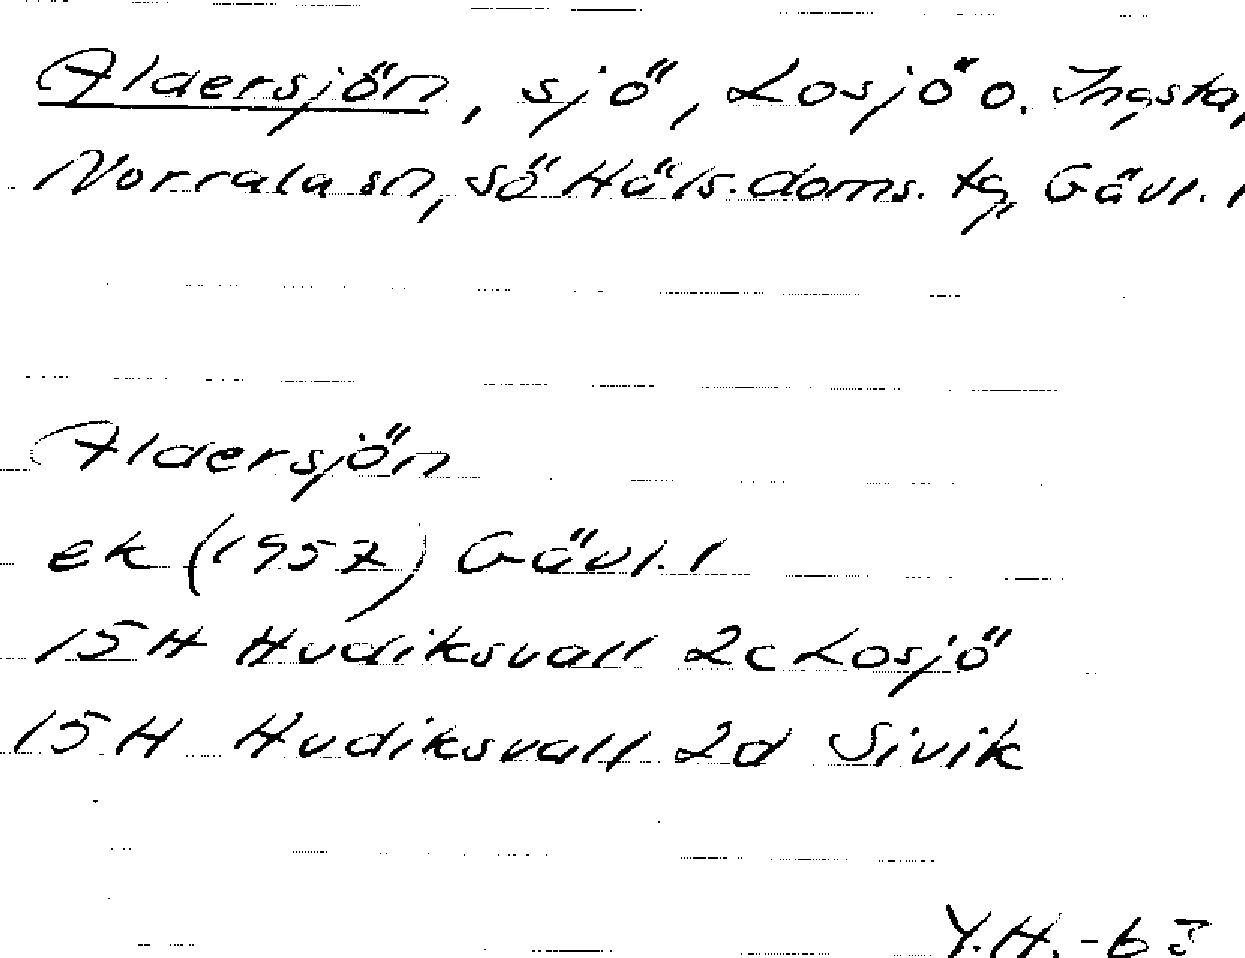 Aldersjön, sjö, Losjö o. Ingsta,
Norrala sn, Sö Häls. doms. tg, Gävl. l
Aldersjön
ek (1957) Gävl. l
15H Hudiksvall 2c Losjö
15H Hudiksvall 2d Sivik
Y.H. -63